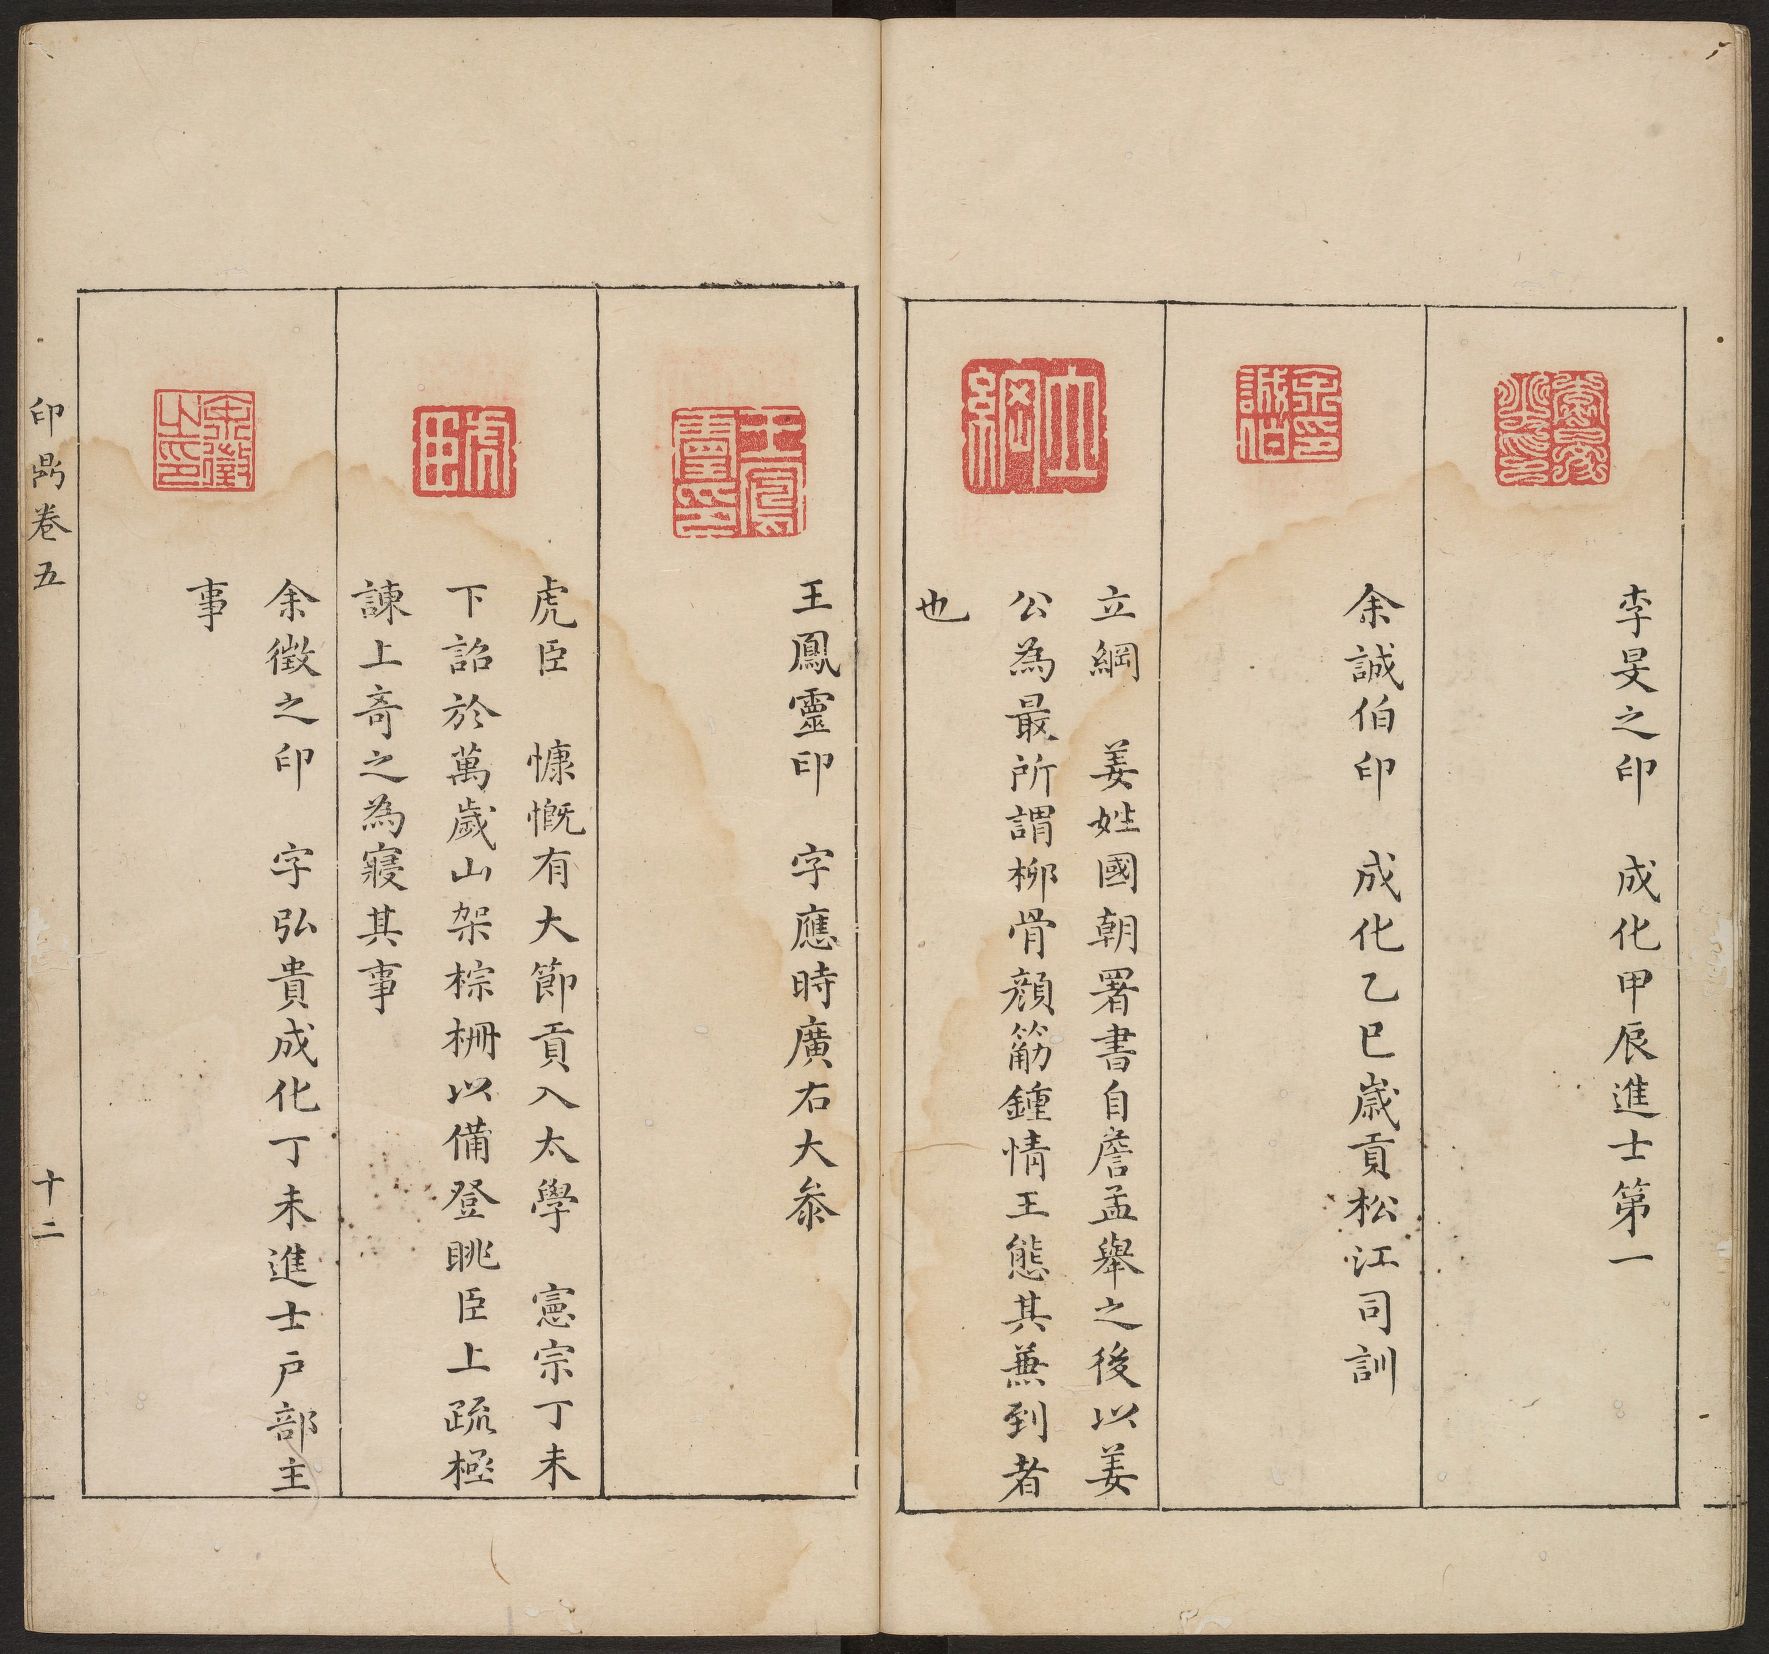 李旻之印　成化甲辰進士第一
余誠伯印　成化乙巳歲貢松江司訓
立綱　姜姓國朝署書自詹孟舉之後以姜
公為最所謂柳骨顔筋鍾情王態其兼到者
也
王鳳靈印　字應時廣右大叅
虎臣　慷慨有大節貢入太學　憲宗丁未
下詔於萬歲山架棕栅以備登眺臣上疏極
諫上奇之為寢其事
余徵之印　字弘貴成化丁未進士户部主
事
印
卷五
十二
立綱
余印誠伯
王鳳靈印
虎臣